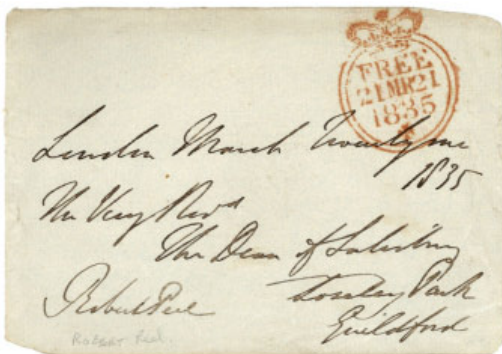 FREE
21MR21
1835
London March Twentyone
1835
The Very Revd
The Dean of Salisbury
Loseley Park
Robert Peel
Guildford
ROBERT Peel.